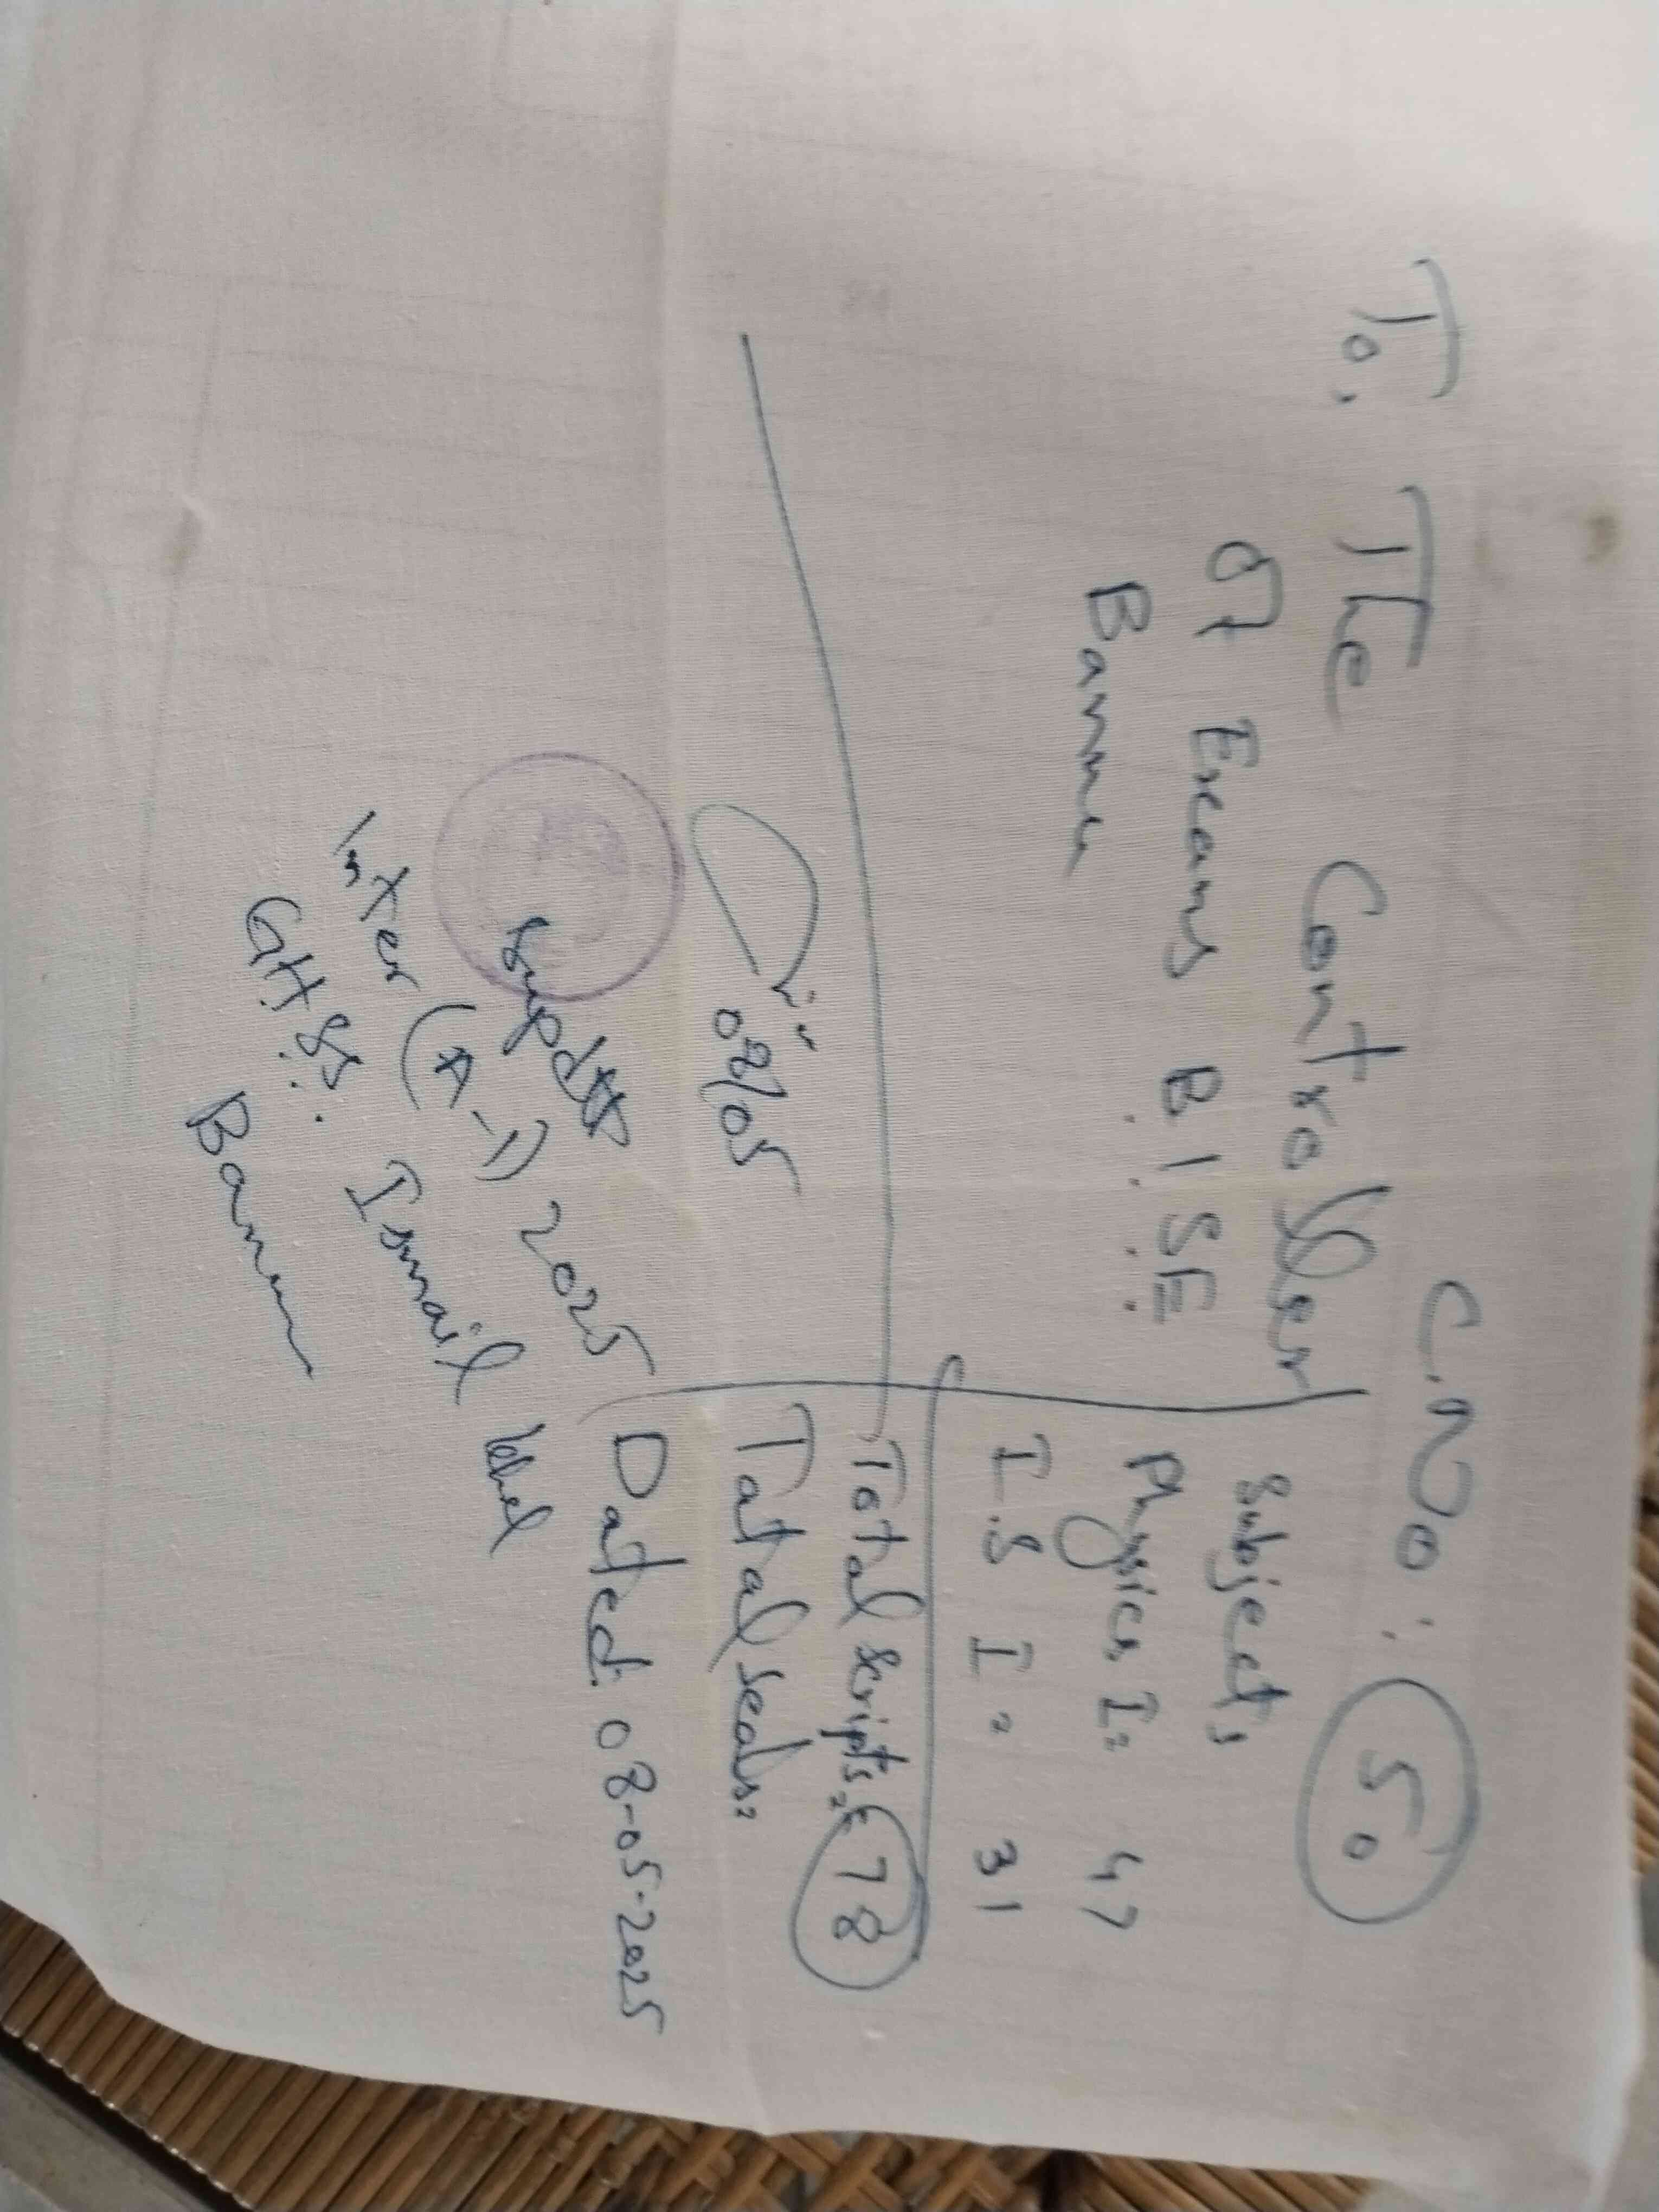 C.No: 50
To, The Controller
of Exams B.I.S.E.
Bannu
Subjects
Physics I = 47
I.S I = 31
Total scripts = 78
Total seals =
Dated: 08-05-2025
08/05
Supdtt
Inter (A-1) 2025
G.H.S.S. Ismail khel
Bannu